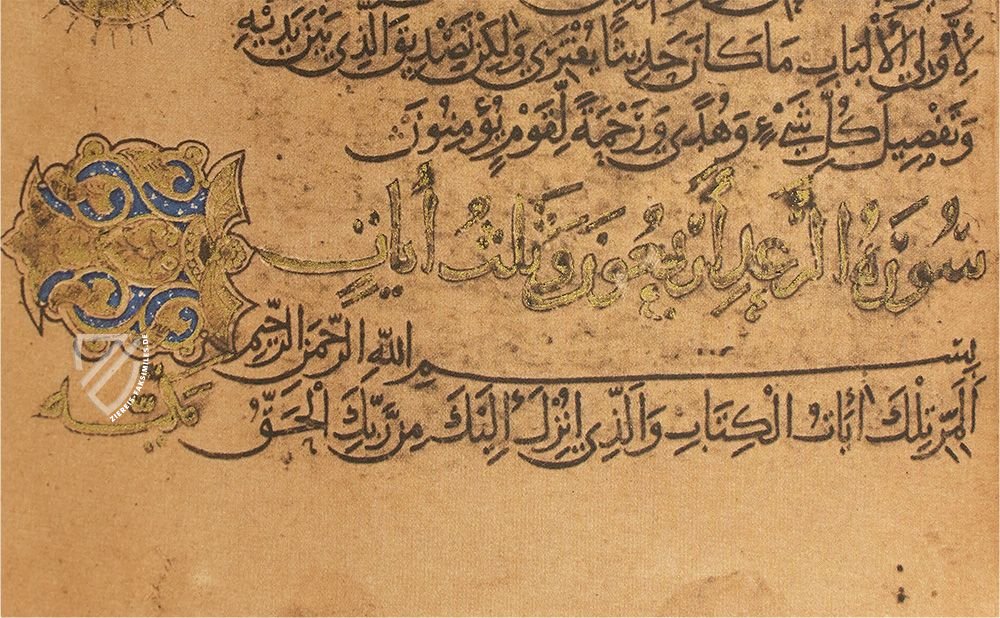 لِأُولِي الْأَلْبَابِ مَا كَانَ حَدِيثًا يُفْتَرَى وَلَكِنْ تَصْدِيقَ الَّذِي بَيْنَ يَدَيْهِ
وَتَفْصِيلَ كُلِّ شَيْءٍ وَهُدًى وَرَحْمَةً لِقَوْمٍ يُؤْمِنُونَ
سُورَةُ الرَّعْدِ أَرْبَعُونَ وَثَلَاثُ آيَاتٍ
بِسْمِ اللَّهِ الرَّحْمَنِ الرَّحِيمِ
مَدَنِيَّة
الٓمٓر تِلْكَ آيَاتُ الْكِتَابِ وَالَّذِي أُنْزِلَ إِلَيْكَ مِنْ رَبِّكَ الْحَقُّ
ZIEREIS-FAKSIMILES.DE